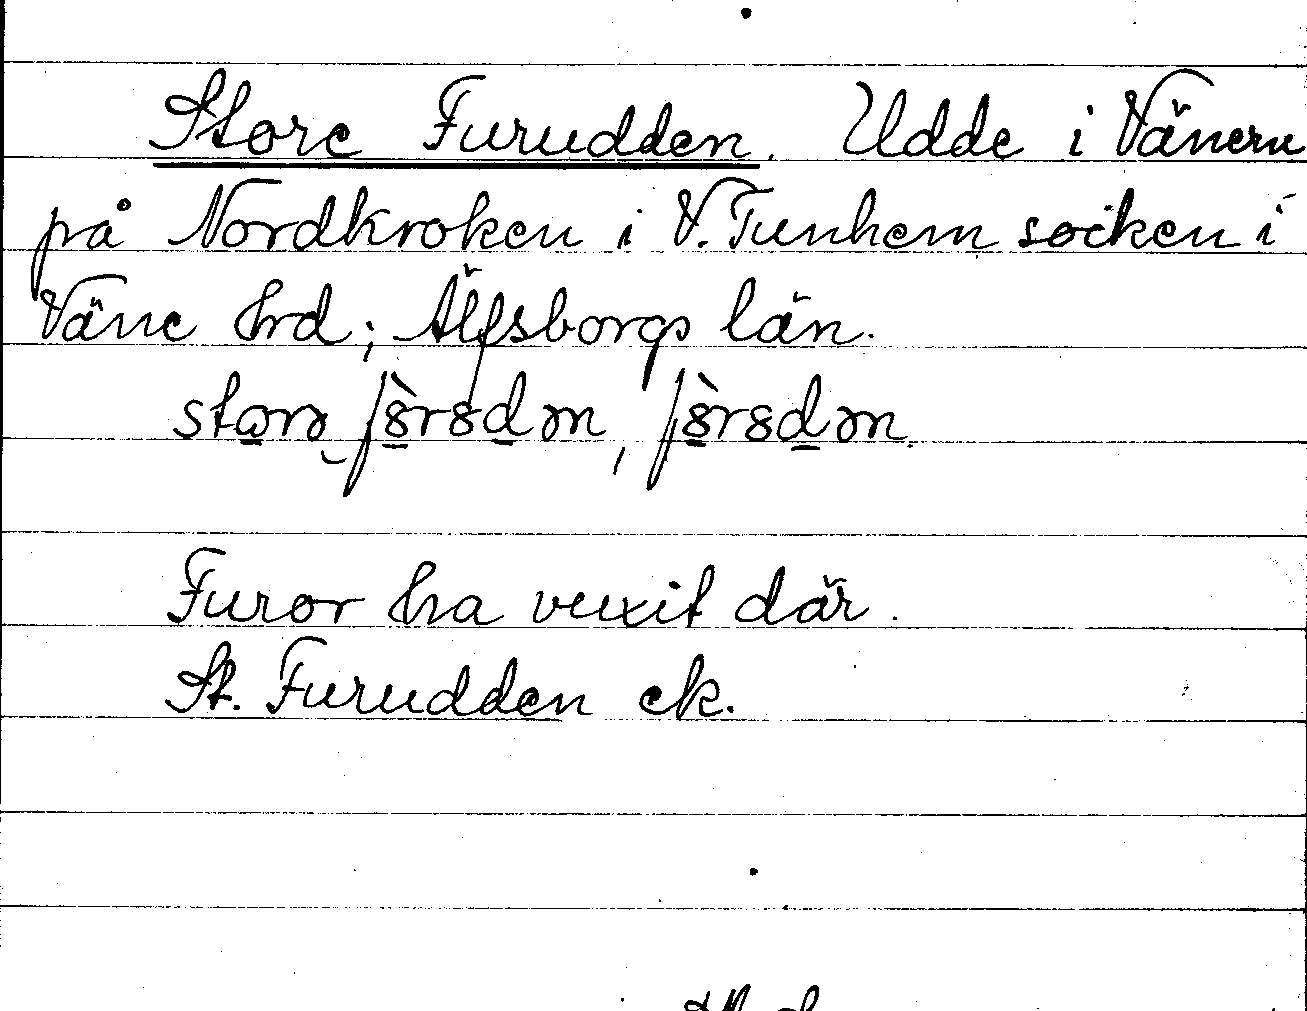 Store Furudden. Udde i Vänern
på Nordkroken i V. Tunhem socken i
Väne hrd; Älfsborgs län.
Furor ha vuxit där.
St. Furudden ek.